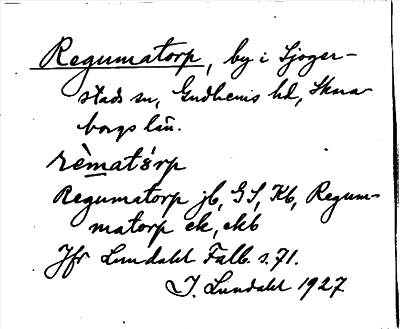 Regumatorp, by i Sjoger-
stads sn, Gudhems hd, Skara-
borgs län.
rèmatårp
Regumatorp jb, GS, Kb, Regum-
matorp ek, ekb
Jfr Lundahl Falb. s. 71.
I. Lundahl 1927